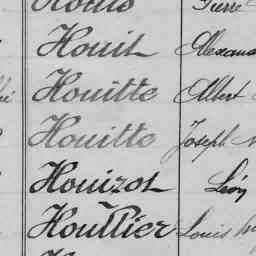 Pierre
Houit Alexand
Houitte Albert
Houitte Joseph
Houizot Léon
Houllier Louis